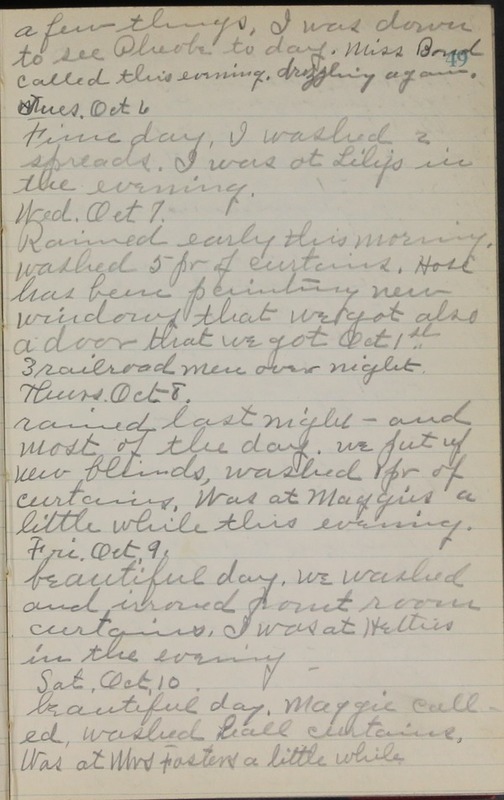 a few things, I was down
to see Phoebe to day. Miss Bond
49
called this evening. drizzling again.
Tues. Oct 6
Fine day, I washed 2
spreads. I was at Lily's in
the evening.
Wed. Oct 7.
Rained early this morning.
washed 5 pr of curtains. Host
has been painting new
windows that we got also
a door that we got Oct 1st
3 railroad men over night.
Thurs. Oct 8.
rained last night - and
most of the day. we put up
new blinds, washed 1 pr of
curtains, Was at Maggies a
little while this evening.
Fri. Oct, 9.
beautiful day. we washed
and irroned front room
curtains. I was at Hetties
in the evening -
Sat. Oct, 10.
beautiful day. Maggie call-
ed, washed hall curtains,
Was at Mrs Fosters a little while